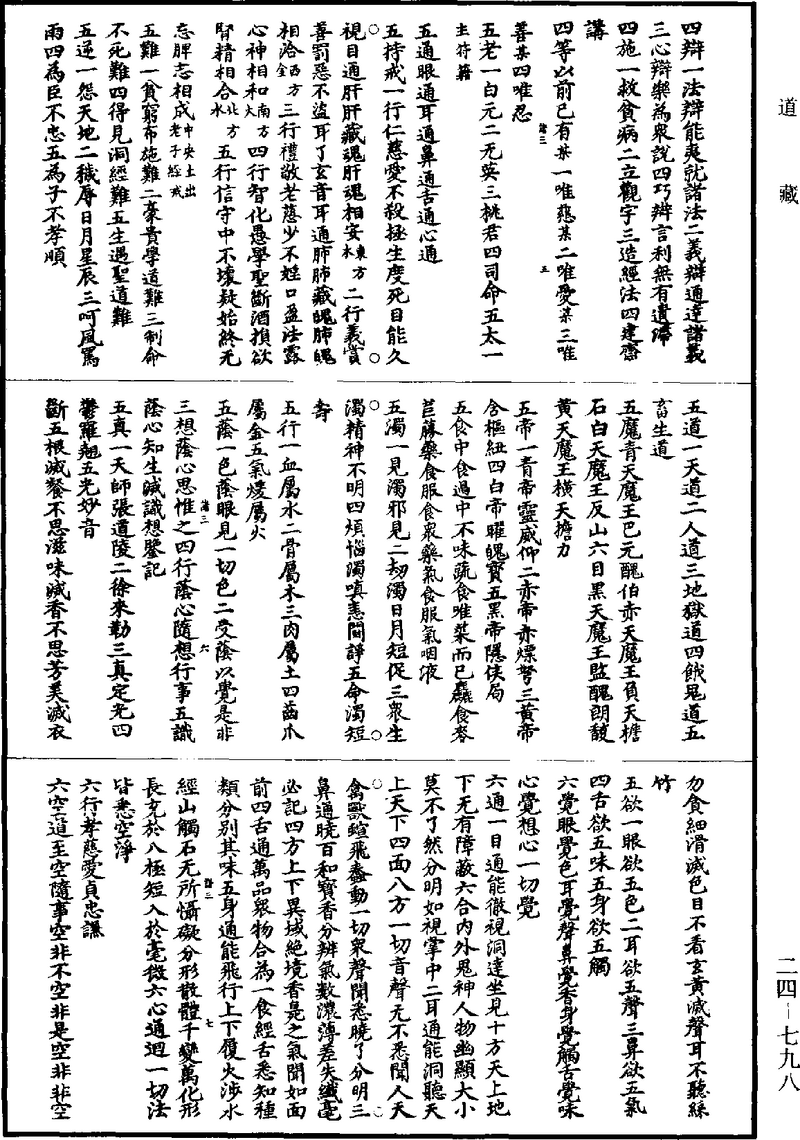 道藏
四辯一法辯能爽就諸法二義辯通達諸義
三心辯樂為衆說四巧辯言利無有遺滯
四施一救貧病二立觀宇三造經法四建齋
講
四等以前已有某一唯慈某二唯愛某三唯
善某四唯忍
諸三 五
五老一白元二无英三桃君四司命五太一
主符籍
五通眼通耳通鼻通舌通心通
五持戒一行仁慈愛不殺拯生度死目能久
視目通肝肝藏魂肝魂相安東方木二行義賞
善罰惡不盜耳了玄音耳通肺肺藏魄肺魄
相洽西方金三行禮敬老慈少不婬口盈法露
心神相和南方火四行智化愚學聖斷酒損欲
腎精相合北方水五行信守中不壞疑始終无
忘脾志相成中央土出老子經戒
五難一貧窮布施難二豪貴學道難三制命
不死難四得見洞經難五生遇聖道難
五逆一怨天地二穢辱日月星辰三呵風罵
雨四為臣不忠五為子不孝順
五道一天道二人道三地獄道四餓鬼道五
畜生道
五魔青天魔王巴元醜伯赤天魔王負天擔
石白天魔王反山六目黑天魔王監醜朗馥
黃天魔王橫天擔力
五帝一青帝靈威仰二赤帝赤熛弩三黃帝
含樞紐四白帝曜魄寶五黑帝隱俠局
五食中食過中不味蔬食唯菜而已麤食麥
苣藤藥食服食衆藥氣食服氣咽液
五濁一見濁邪見二劫濁日月短促三衆生
濁精神不明四煩惱濁嗔恚闘諍五命濁短
壽
五行一血屬水二骨屬木三肉屬土四齒爪
屬金五氣煖屬火
五蔭一色蔭眼見一切色二受蔭以覺是非
諸三 六
三想蔭心思惟之四行蔭心隨想行事五識
蔭心知生滅識想鑒記
五真一天師張道陵二徐來勒三真定光四
鬱羅翹五光妙音
斷五根滅餐不思滋味滅香不思芳美滅衣
勿食細滑滅色目不看玄黃滅聲耳不聽絲
竹
五欲一眼欲五色二耳欲五聲三鼻欲五氣
四舌欲五味五身欲五觸
六覺眼覺色耳覺聲鼻覺香身覺觸舌覺味
心覺想心一切覺
六通一目通能徹視洞達坐見十方天上地
下无有障蔽六合內外鬼神人物幽顯大小
莫不了然分明如視掌中二耳通能洞聽天
上天下四面八方一切音聲无不悉聞人天
禽獸蝖飛蠢動一切衆聲聞悉曉了分明三
鼻通曉百和寶香分辨氣數濃薄差失纖毫
必記四方上下異域絕境香臭之氣聞如面
前四舌通萬品衆物合為一食經舌悉知種
類分別其味五身通能飛行上下履火涉水
諸三 七
經山觸石无所懾礙分形散體千變萬化形
長充於八極短入於毫微六心通迥一切法
皆悉空淨
六行孝慈愛貞忠謙
六空道至空隨事空非不空非是空非非空
二四-七九八